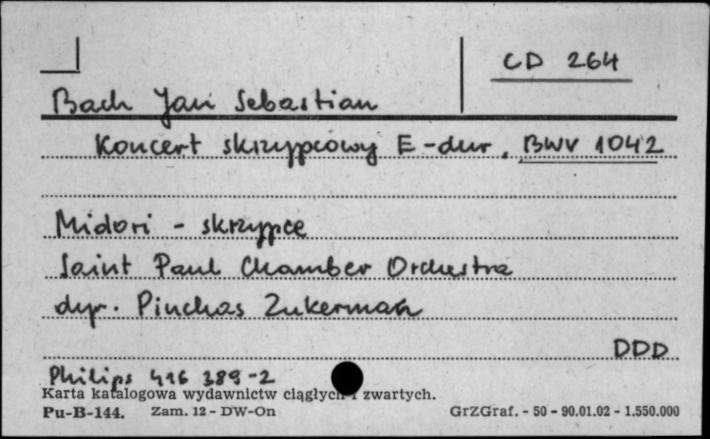 CD 264
Bach Jan Sebastian
Koncert skrzypcowy E-dur, BWV 1042
Midori - skrzypce
Saint Paul Chamber Orchestra
dyr. Pinchas Zukerman
DDD
Philips 416 389-2
Karta katalogowa wydawnictw ciągłych i zwartych.
Pu-B-144. Zam. 12 - DW-On GrZGraf. - 50 - 90.01.02 - 1.550.000